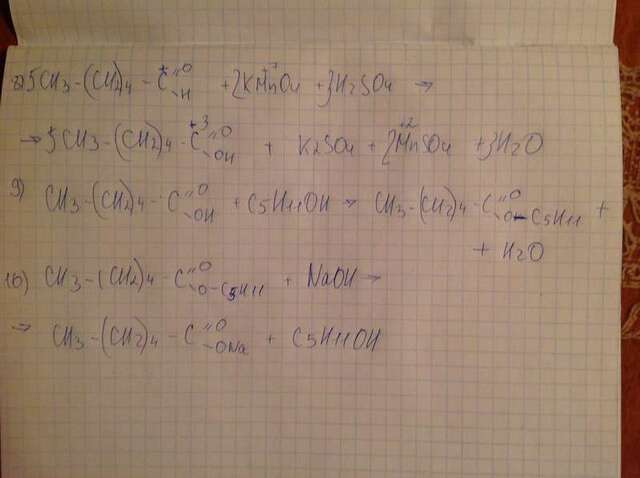 8) 5CH3-(CH2)4-C(=O)-H + 2KMnO4 + 3H2SO4 →
→ 5CH3-(CH2)4-C(=O)-OH + K2SO4 + 2MnSO4 + 3H2O
9) CH3-(CH2)4-C(=O)-OH + C5H11OH → CH3-(CH2)4-C(=O)-O-C5H11 +
+ H2O
10) CH3-(CH2)4-C(=O)-O-C5H11 + NaOH →
→ CH3-(CH2)4-C(=O)-ONa + C5H11OH